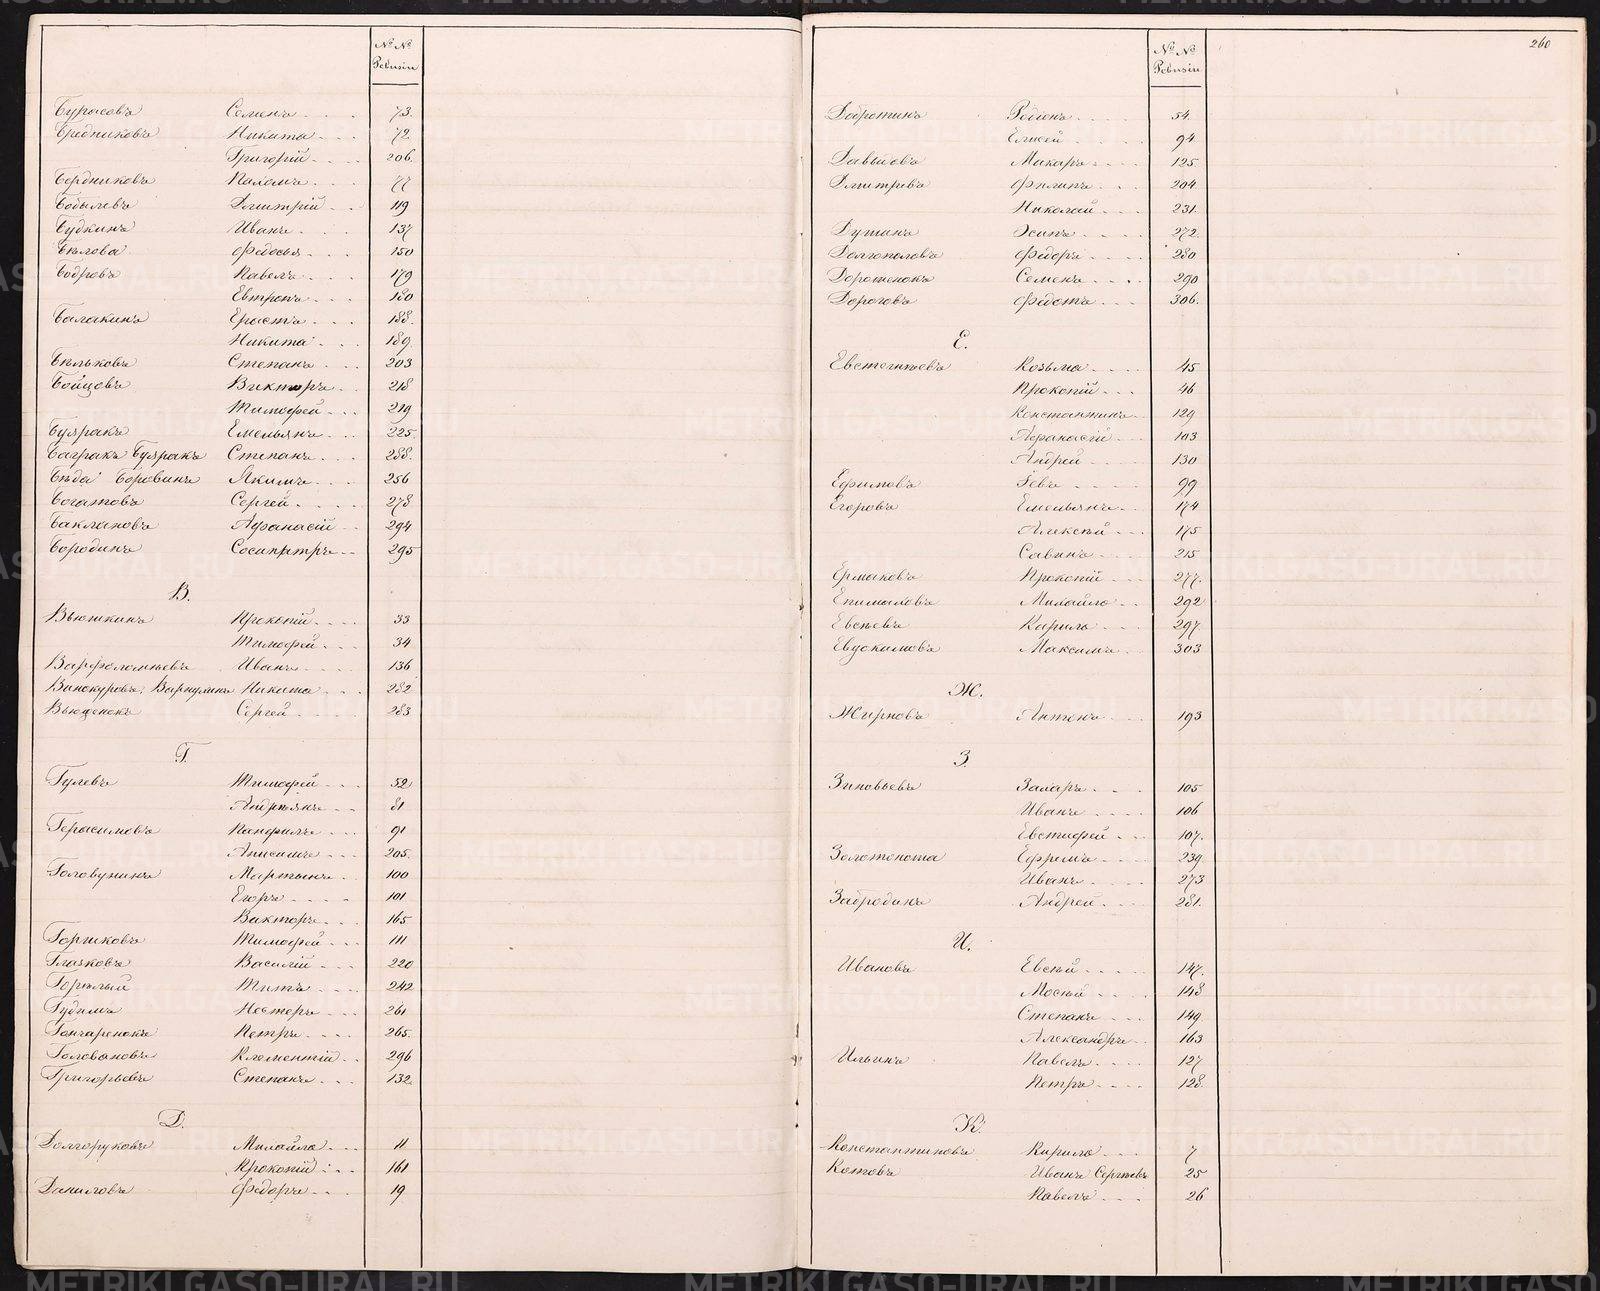 № №
Ревизіи
Бурасовъ Семенъ 73.
Бредниковъ Никита 72
Григорій 206.
Бердниковъ Паломъ 77
Бобылевъ Дмитрій 119
Будкинъ Иванъ 137
Бѣлова Федосья 150
Бодровъ Павелъ 179
Евтропъ 180
Балакинъ Ерастъ 188.
Никита 189
Бѣльковъ Степанъ 203
Бойцовъ Викторъ 218
Тимофей 219
Буяракъ Емельянъ 225.
Баіракъ Буяракъ Степанъ 288.
Бѣда Боровикъ Якимъ 256
Богатовъ Сергей 278
Баклановъ Афанасій 294
Бородинъ Сосипатръ 295
В.
Вьюшкинъ Прокопій 33
Тимофей 34
Варфоломѣевъ Иванъ 136
Винокуровъ, Никита 282
Вьюненокъ Сергей 283
Г.
Гулевъ Тимофей 52
Андреянъ 81
Герасимовъ Панфилъ 91
Анисимъ 205.
Головунинъ Мартынъ 100
Егоръ 101
Викторъ 165
Горшковъ Тимофей 111
Глазковъ Василій 220
Горѣлый Титъ 242
Гудимъ Несторъ 261
Гончаренокъ Петръ 265.
Головановъ Климентій 296
Григорьевъ Степанъ 132.
Д.
Долгоруковъ Михайло 11
Прокопій 161
Даниловъ Федоръ 19
260
№ №
Ревизіи
Добротинъ Родіонъ 54.
Елисей 94
Давыдовъ Макаръ 125
Дмитревъ Филипъ 204
Николай 231.
Душинъ Осипъ 272.
Долгополовъ Федоръ 280
Дорошенокъ Семенъ 290
Дороговъ Федотъ 306.
Е.
Евстегнѣевъ Козьма 45
Прокопій 46
Константинъ 129
Афанасій 103
Андрей 130
Ефимовъ Левъ 99
Егоровъ Емельянъ 174
Алексѣй 175
Савинъ 215
Ермаковъ Прокопій 277.
Епимаховъ Михайло 292
Евсѣевъ Кирило 297.
Евдокимовъ Максимъ 303
Ж.
Жирновъ Антонъ 193
З
Зиновьевъ Захаръ 105
Иванъ 106
Евстифей 107.
Золотонога Ефремъ 239
Иванъ 273
Забродинъ Андрей 281.
И.
Ивановъ Евсѣй 147.
Мосѣй 148
Степанъ 149.
Александръ 163
Ильинъ Павелъ 127
Петръ 128.
К.
Константиновъ Кирило 7
Котовъ Иванъ Сергѣевъ 25
Павелъ 26
METRIKI.GASO-URAL.RU